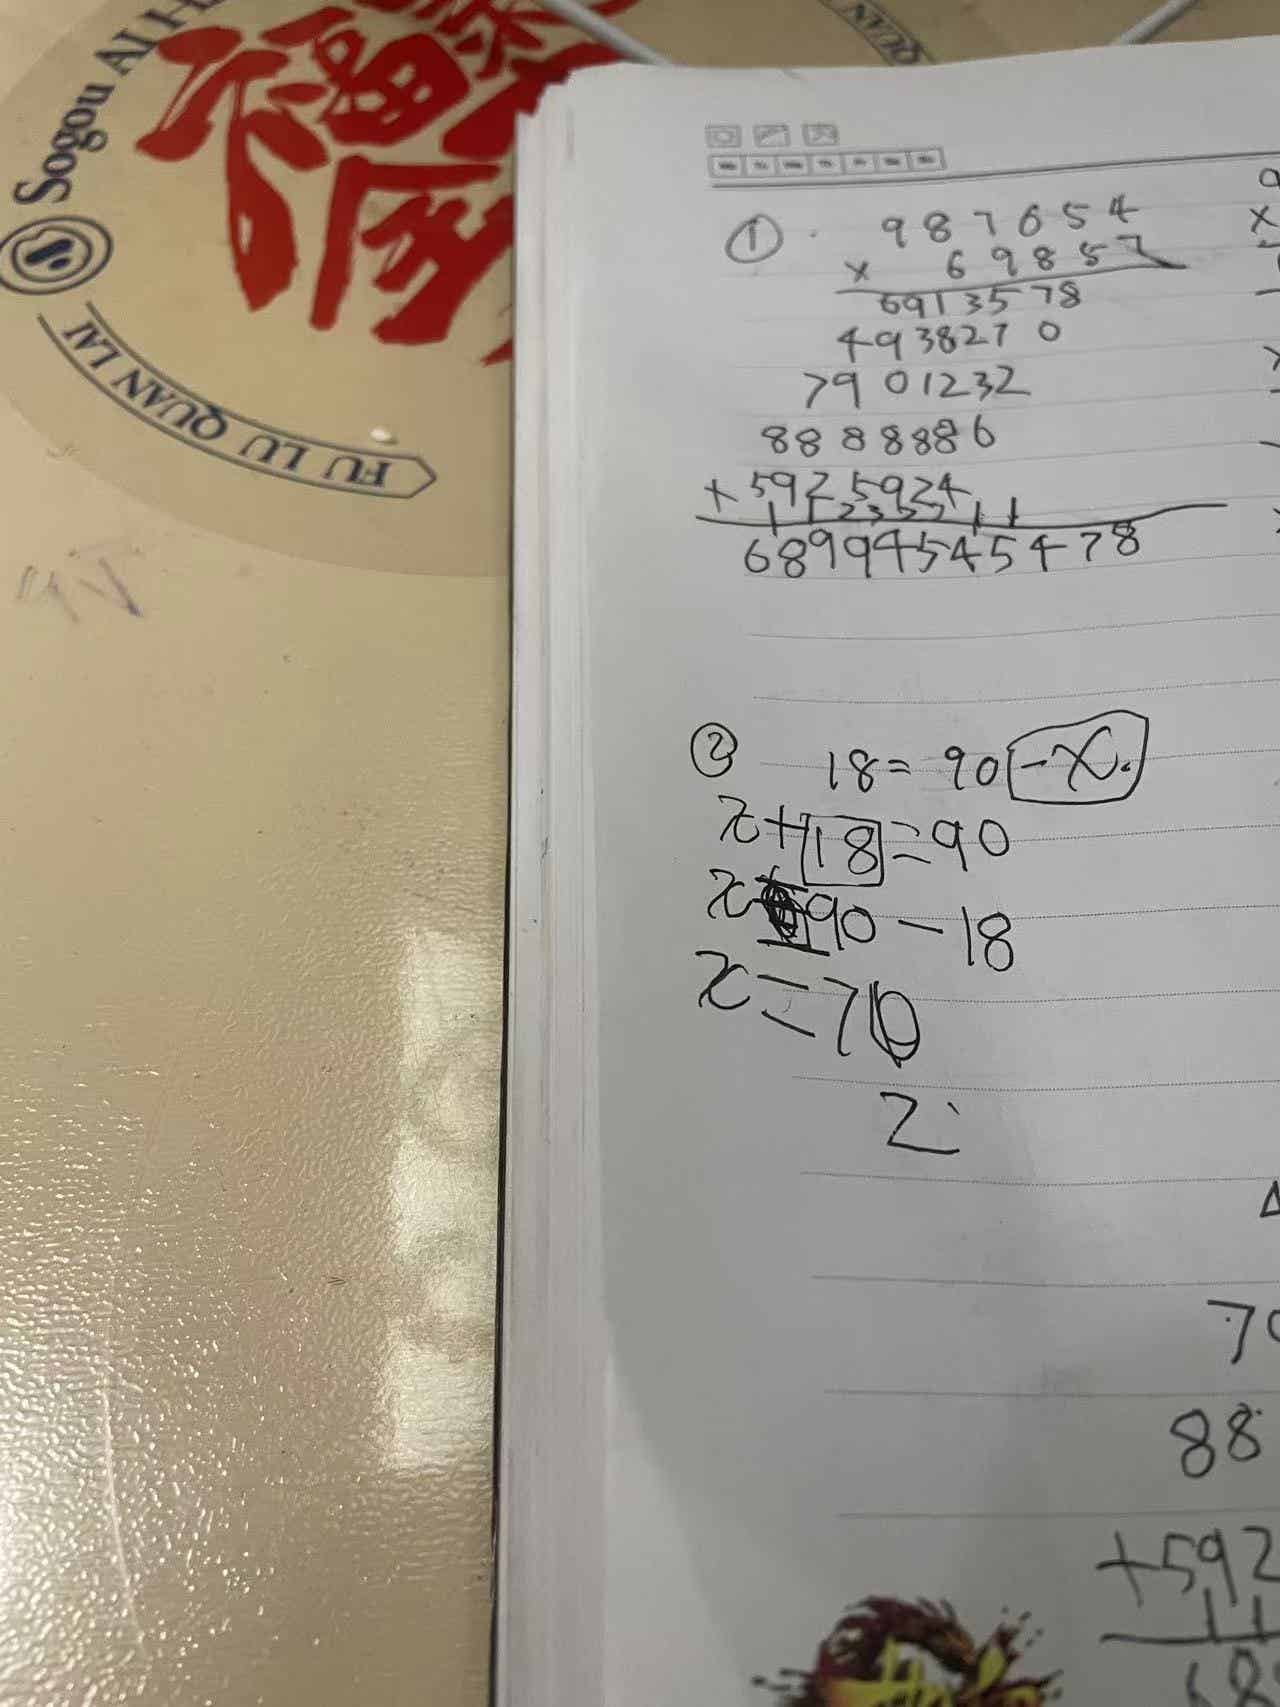 Sogou AI H
福
FU LU QUAN LAI
QUAN
① 987654
× 69857
6913578
4938270
7901232
8888886
+ 5925924
68994545478
② 18 = 90 - x.
x + 18 = 90
x = 90 - 18
x = 70
2
9
×
70
88
+592